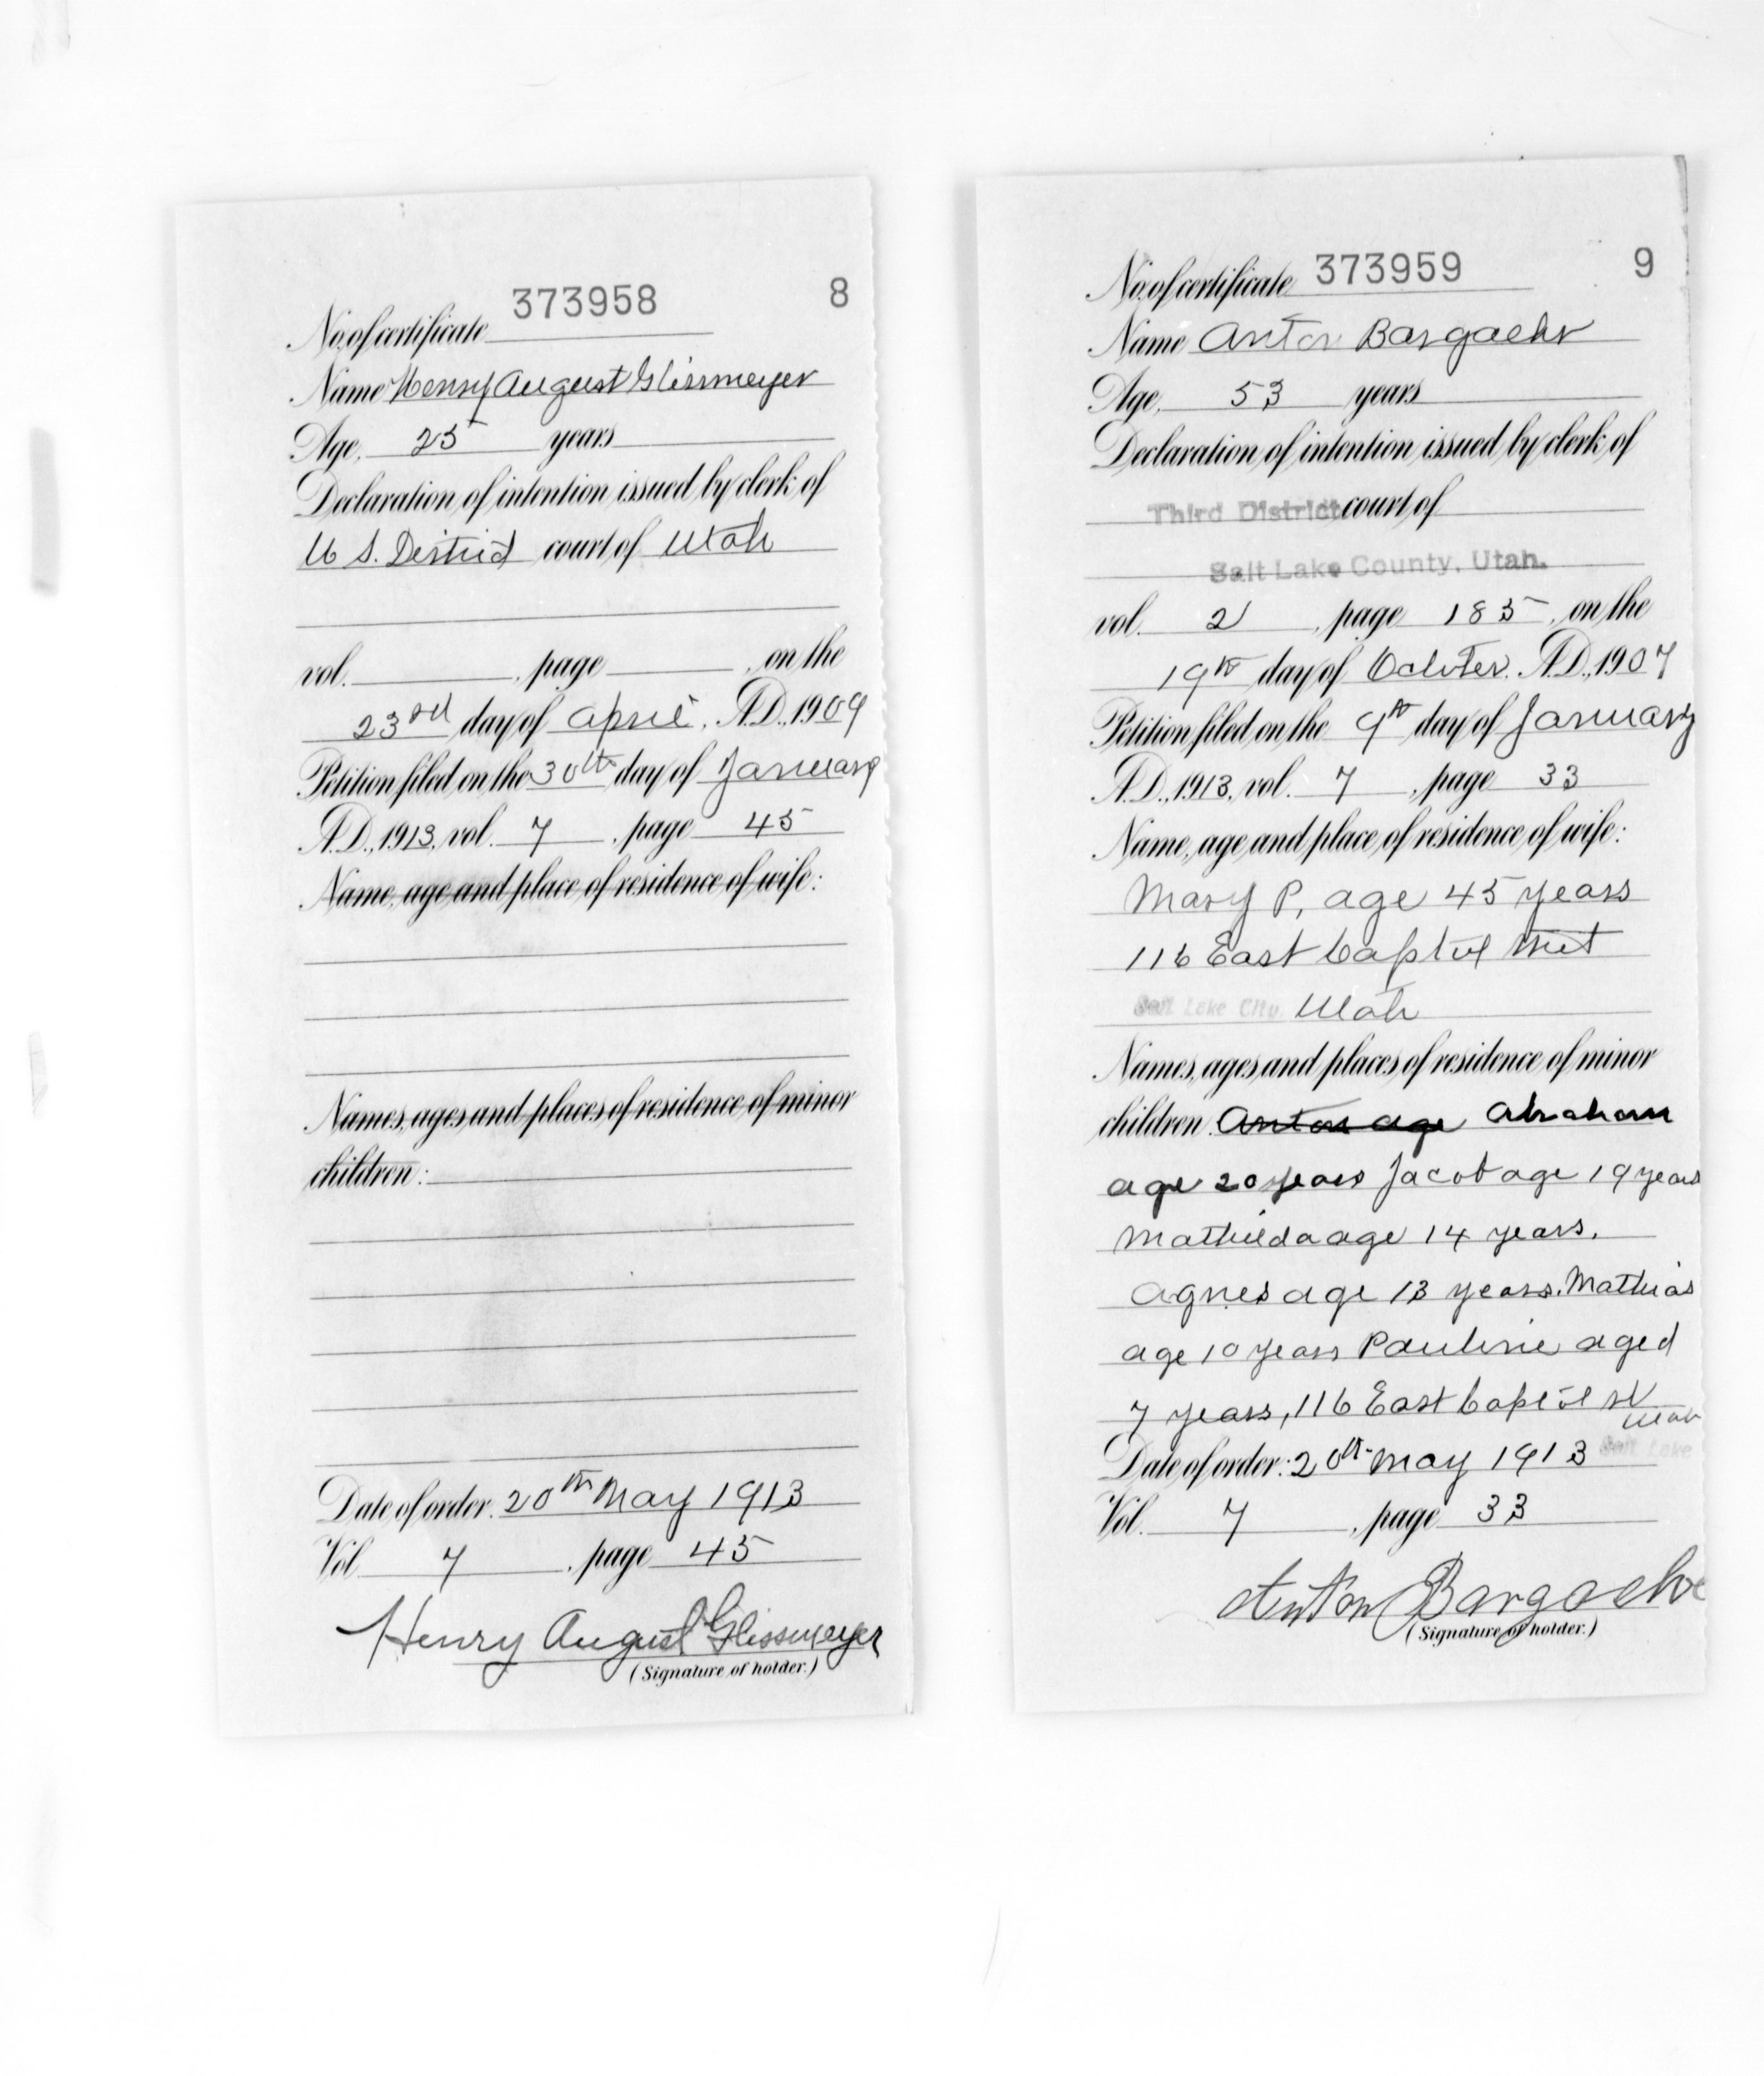 373958 8
No. of certificate
Name Henry August Glissmeyer
Age, 25 years
Declaration of intention issued by clerk of
U S. District court of Utah
vol. , page , on the
23rd day of April, A.D., 1909
Petition filed on the 30th day of January
A.D., 1913, vol. 7, page 45
Name, age and place of residence of wife:
Names, ages and places of residence of minor
children:
Date of order: 20th May 1913
Vol. 7, page 45
Henry August Glissmeyer
(Signature of holder.)
No. of certificate 373959 9
Name Anton Bargaehr
Age, 53 years
Declaration of intention issued by clerk of
Third District court of
Salt Lake County, Utah.
vol. 2, page 185, on the
19th day of October, A.D., 1907
Petition filed on the 9th day of January
A.D., 1913, vol. 7, page 33
Name, age and place of residence of wife:
Mary P, age 45 years
116 East Capitol
Salt Lake City Utah
Names, ages and places of residence of minor
children Anton age Abraham
age 20 years Jacob age 19 years
Mathilda age 14 years.
Agnes age 13 years. Mathias
age 10 years Pauline aged
7 years, 116 East Capitol st
Utah
Date of order: 20th May 1913 Salt Lake
Vol. 7, page 33
Anton Bargaehr
(Signature of holder.)